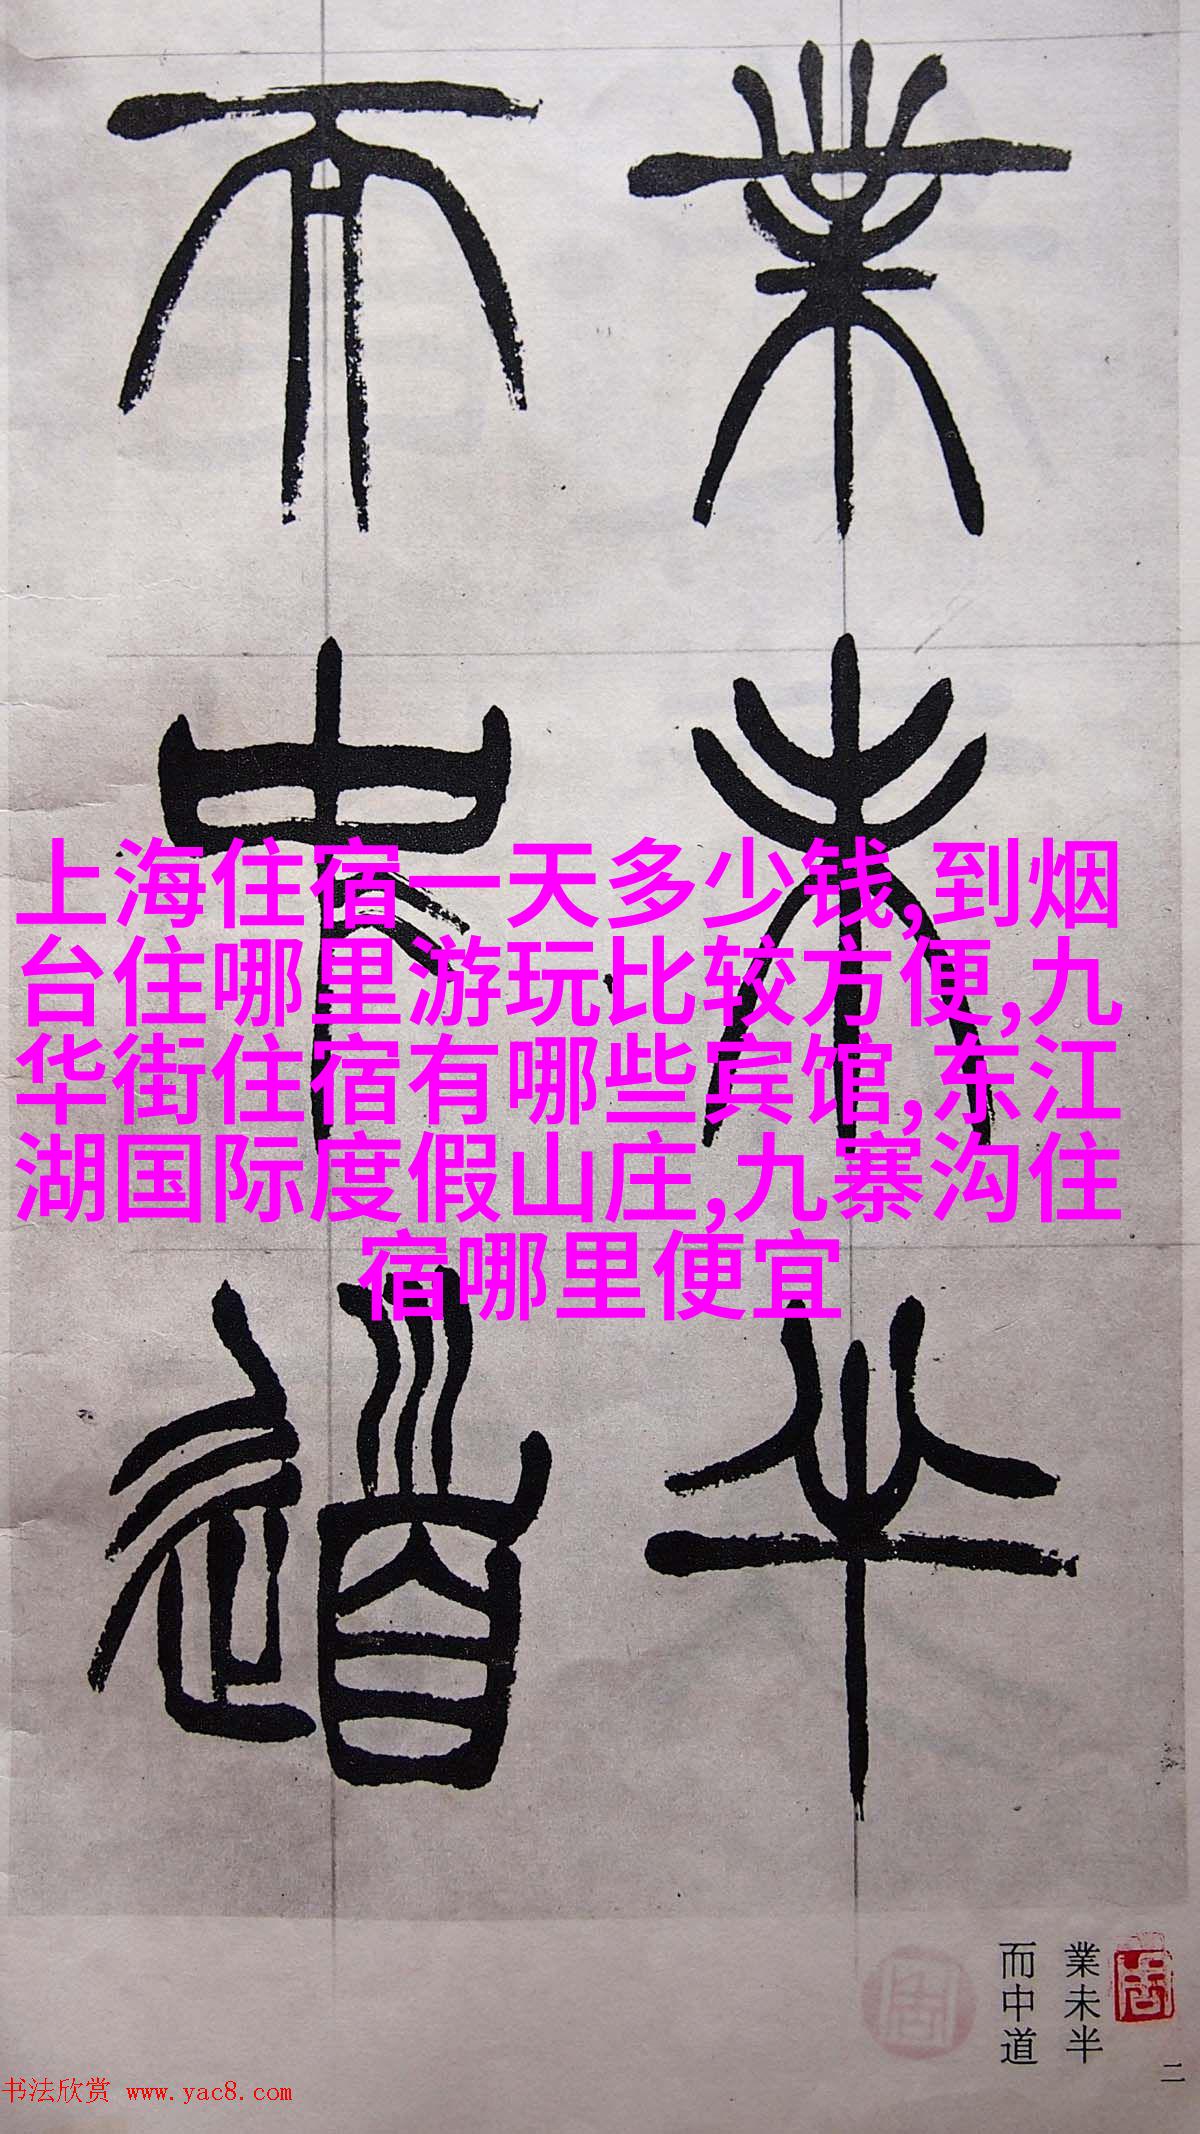 業未半
而中道
上海住宿一天多少钱,到烟
台住哪里游玩比较方便,九
华街住宿有哪些宾馆,东江
湖国际度假山庄,九寨沟住
宿哪里便宜
業未半
而中道
二
书法欣赏 www.yac8.com